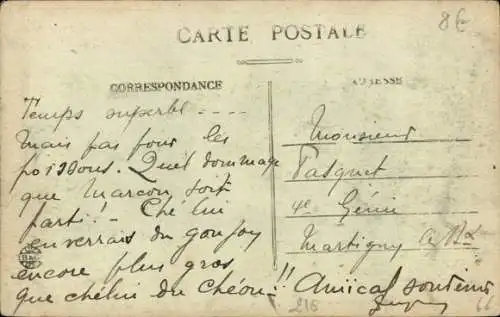 8€
CARTE POSTALE
CORRESPONDANCE
ADRESSE
Temps superbe ----
Mais pas pour les
poissons. Quel dommage
que Marcon soit
parti! - Ché lui
enverrais du goujon
encore plus gros
que chélui du Chéou!! Amical souvenir
Monsieur
Pasquet
4e Génie
Martigny
216